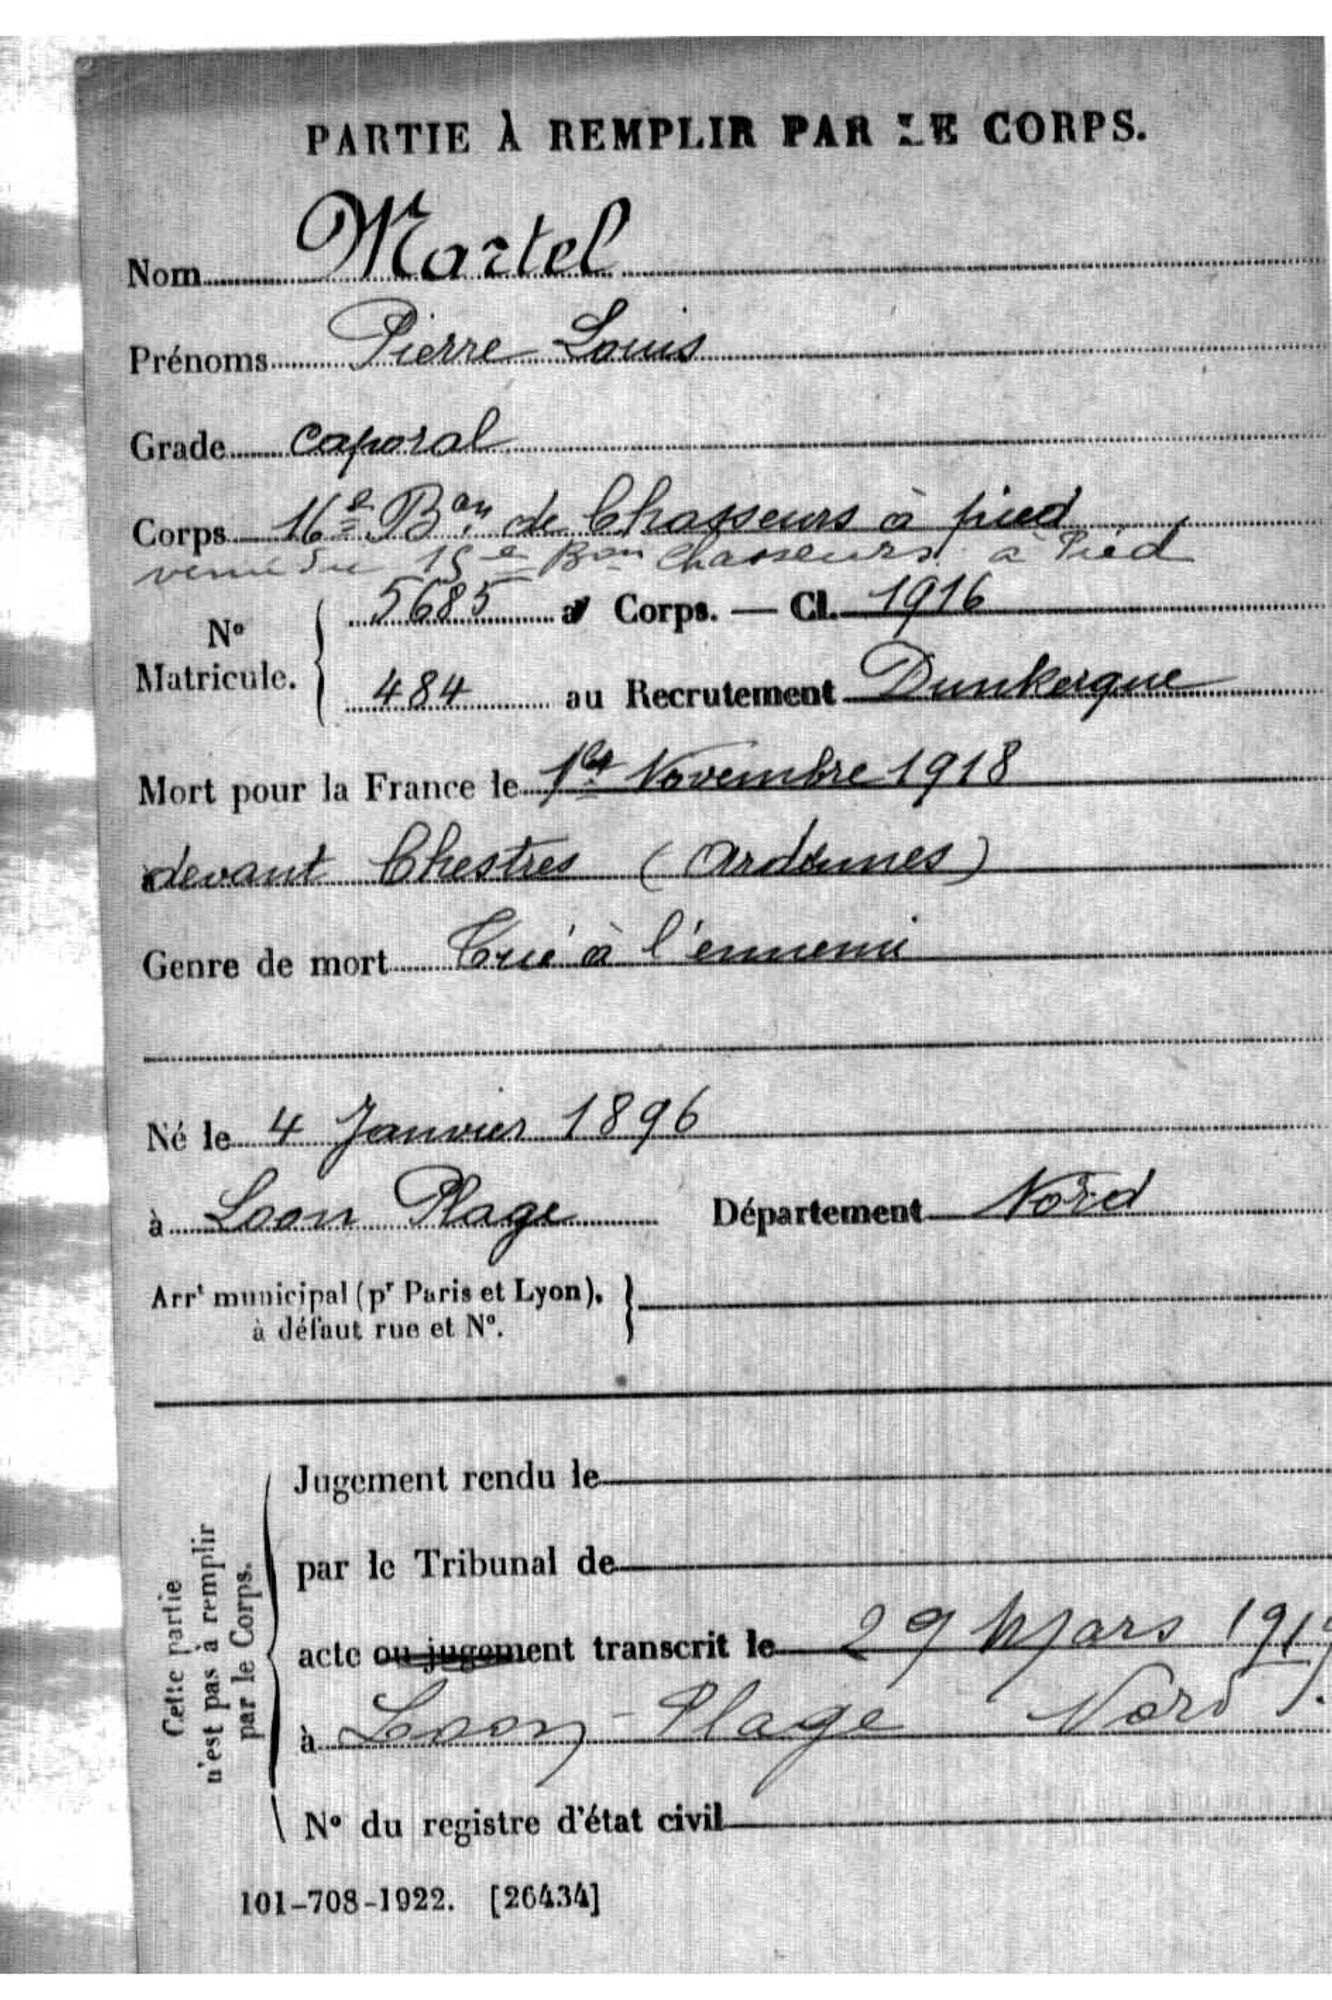 PARTIE À REMPLIR PAR LE CORPS.
Nom Martel
Prénoms Pierre Louis
Grade Caporal
Corps 16e Bon de Chasseurs à pied
venu du 15e Bon Chasseurs à Pied
No Matricule. 5685 au Corps. — Cl. 1916
484 au Recrutement Dunkerque
Mort pour la France le 1er Novembre 1918
devant Chestres (Ardennes)
Genre de mort Tué à l'ennemi
Né le 4 Janvier 1896
à Loon Plage Département Nord
Arrt municipal (pr Paris et Lyon),
à défaut rue et No.
Cette partie
n'est pas à remplir
par le Corps.
Jugement rendu le
par le Tribunal de
acte ou jugement transcrit le 29 Mars 1919
à Loon-Plage Nord.
No du registre d'état civil
101-708-1922. [26434]